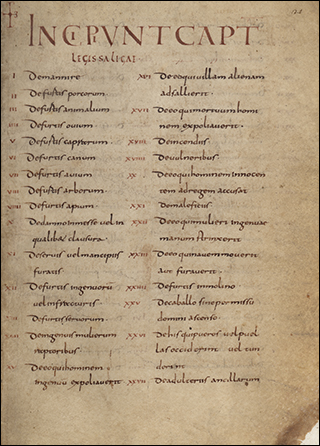 INCIPVNT CAPT
LEGIS SALICAE
I De mannire
II De furtis porcorum
III De furtis animalium
De furtis ovium
V De furtis caprarum
VI De furtis canum
VII De furtis avium
VIII De furtis arborum
De furtis apium
X De damno in messe vel in
qualibet clausura
XI De servis vel mancipiis
furatis
XII De furtis ingenuoru
vel infracturis
De furtis servorum
De ingenuis mulierum
raptoribus
De eo qui hominem
ingenuu expoliaverit
XVI De eo qui villam alienam
adsallierit
XVII De eo qui mortuum homi
nem expoliaverit
XVIII De incendiis
De vulneribus
XX De eo qui hominem innocen
tem ad regem accusat
XXI De maleficiis
XXII De eo qui mulieri ingenuae
manum strinxerit
XXIII De eo qui navem moverit
aut furaverit
XXIIII De furtis in molino
XXV De caballo sine permissu
domini ascenso
XXVI De his qui pueros vel puel
las occiderint vel tun
dorent
XXVII De adulteriis ancillarum